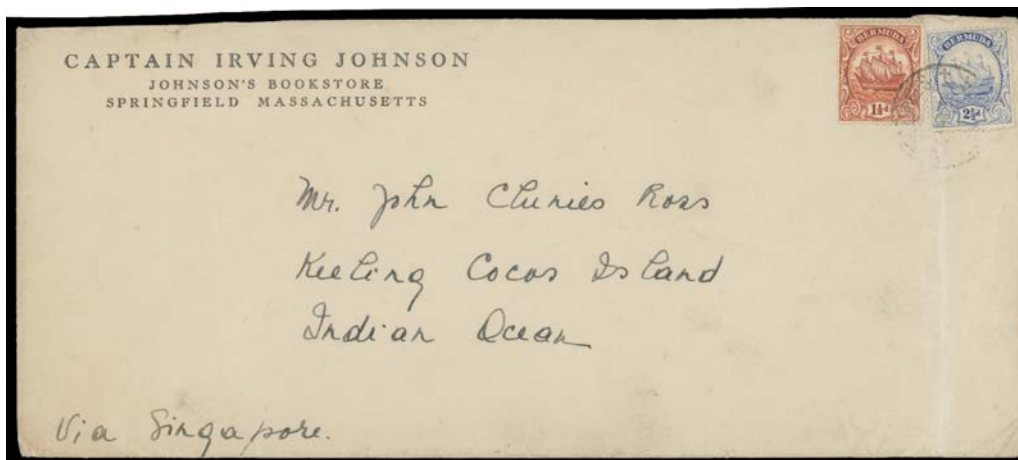 CAPTAIN IRVING JOHNSON
JOHNSON'S BOOKSTORE
SPRINGFIELD MASSACHUSETTS
BERMUDA
1½d
BERMUDA
2½d
Mr. John Clunies Ross
Keeling Cocos Island
Indian Ocean
Via Singapore.